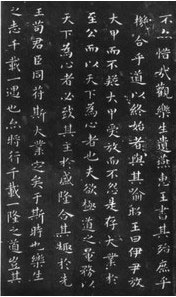 不亦惜哉觀樂生遺燕惠王書其殆庶乎
機合乎道以終始者與其喻昭王曰伊尹放
大甲而不疑大甲受放而不怨是存大業於
至公而以天下為心者也夫欲極道之量務以
天下為心者必致其主於盛隆合其趣於先
王苟君臣同符斯大業定矣于斯時也樂生
之志千載一遇也亦將行千載一隆之道豈其